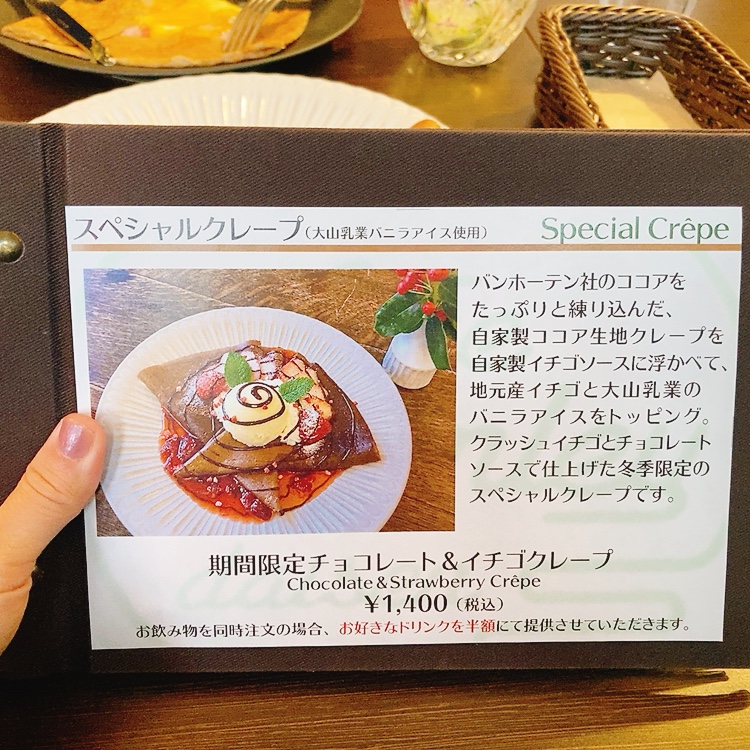 スペシャルクレープ（大山乳業バニラアイス使用） Special Crêpe
バンホーテン社のココアを
たっぷりと練り込んだ、
自家製ココア生地クレープを
自家製イチゴソースに浮かべて、
地元産イチゴと大山乳業の
バニラアイスをトッピング。
クラッシュイチゴとチョコレート
ソースで仕上げた冬季限定の
スペシャルクレープです。
期間限定チョコレート＆イチゴクレープ
Chocolate＆Strawberry Crêpe
¥1,400（税込）
お飲み物を同時注文の場合、お好きなドリンクを半額にて提供させていただきます。